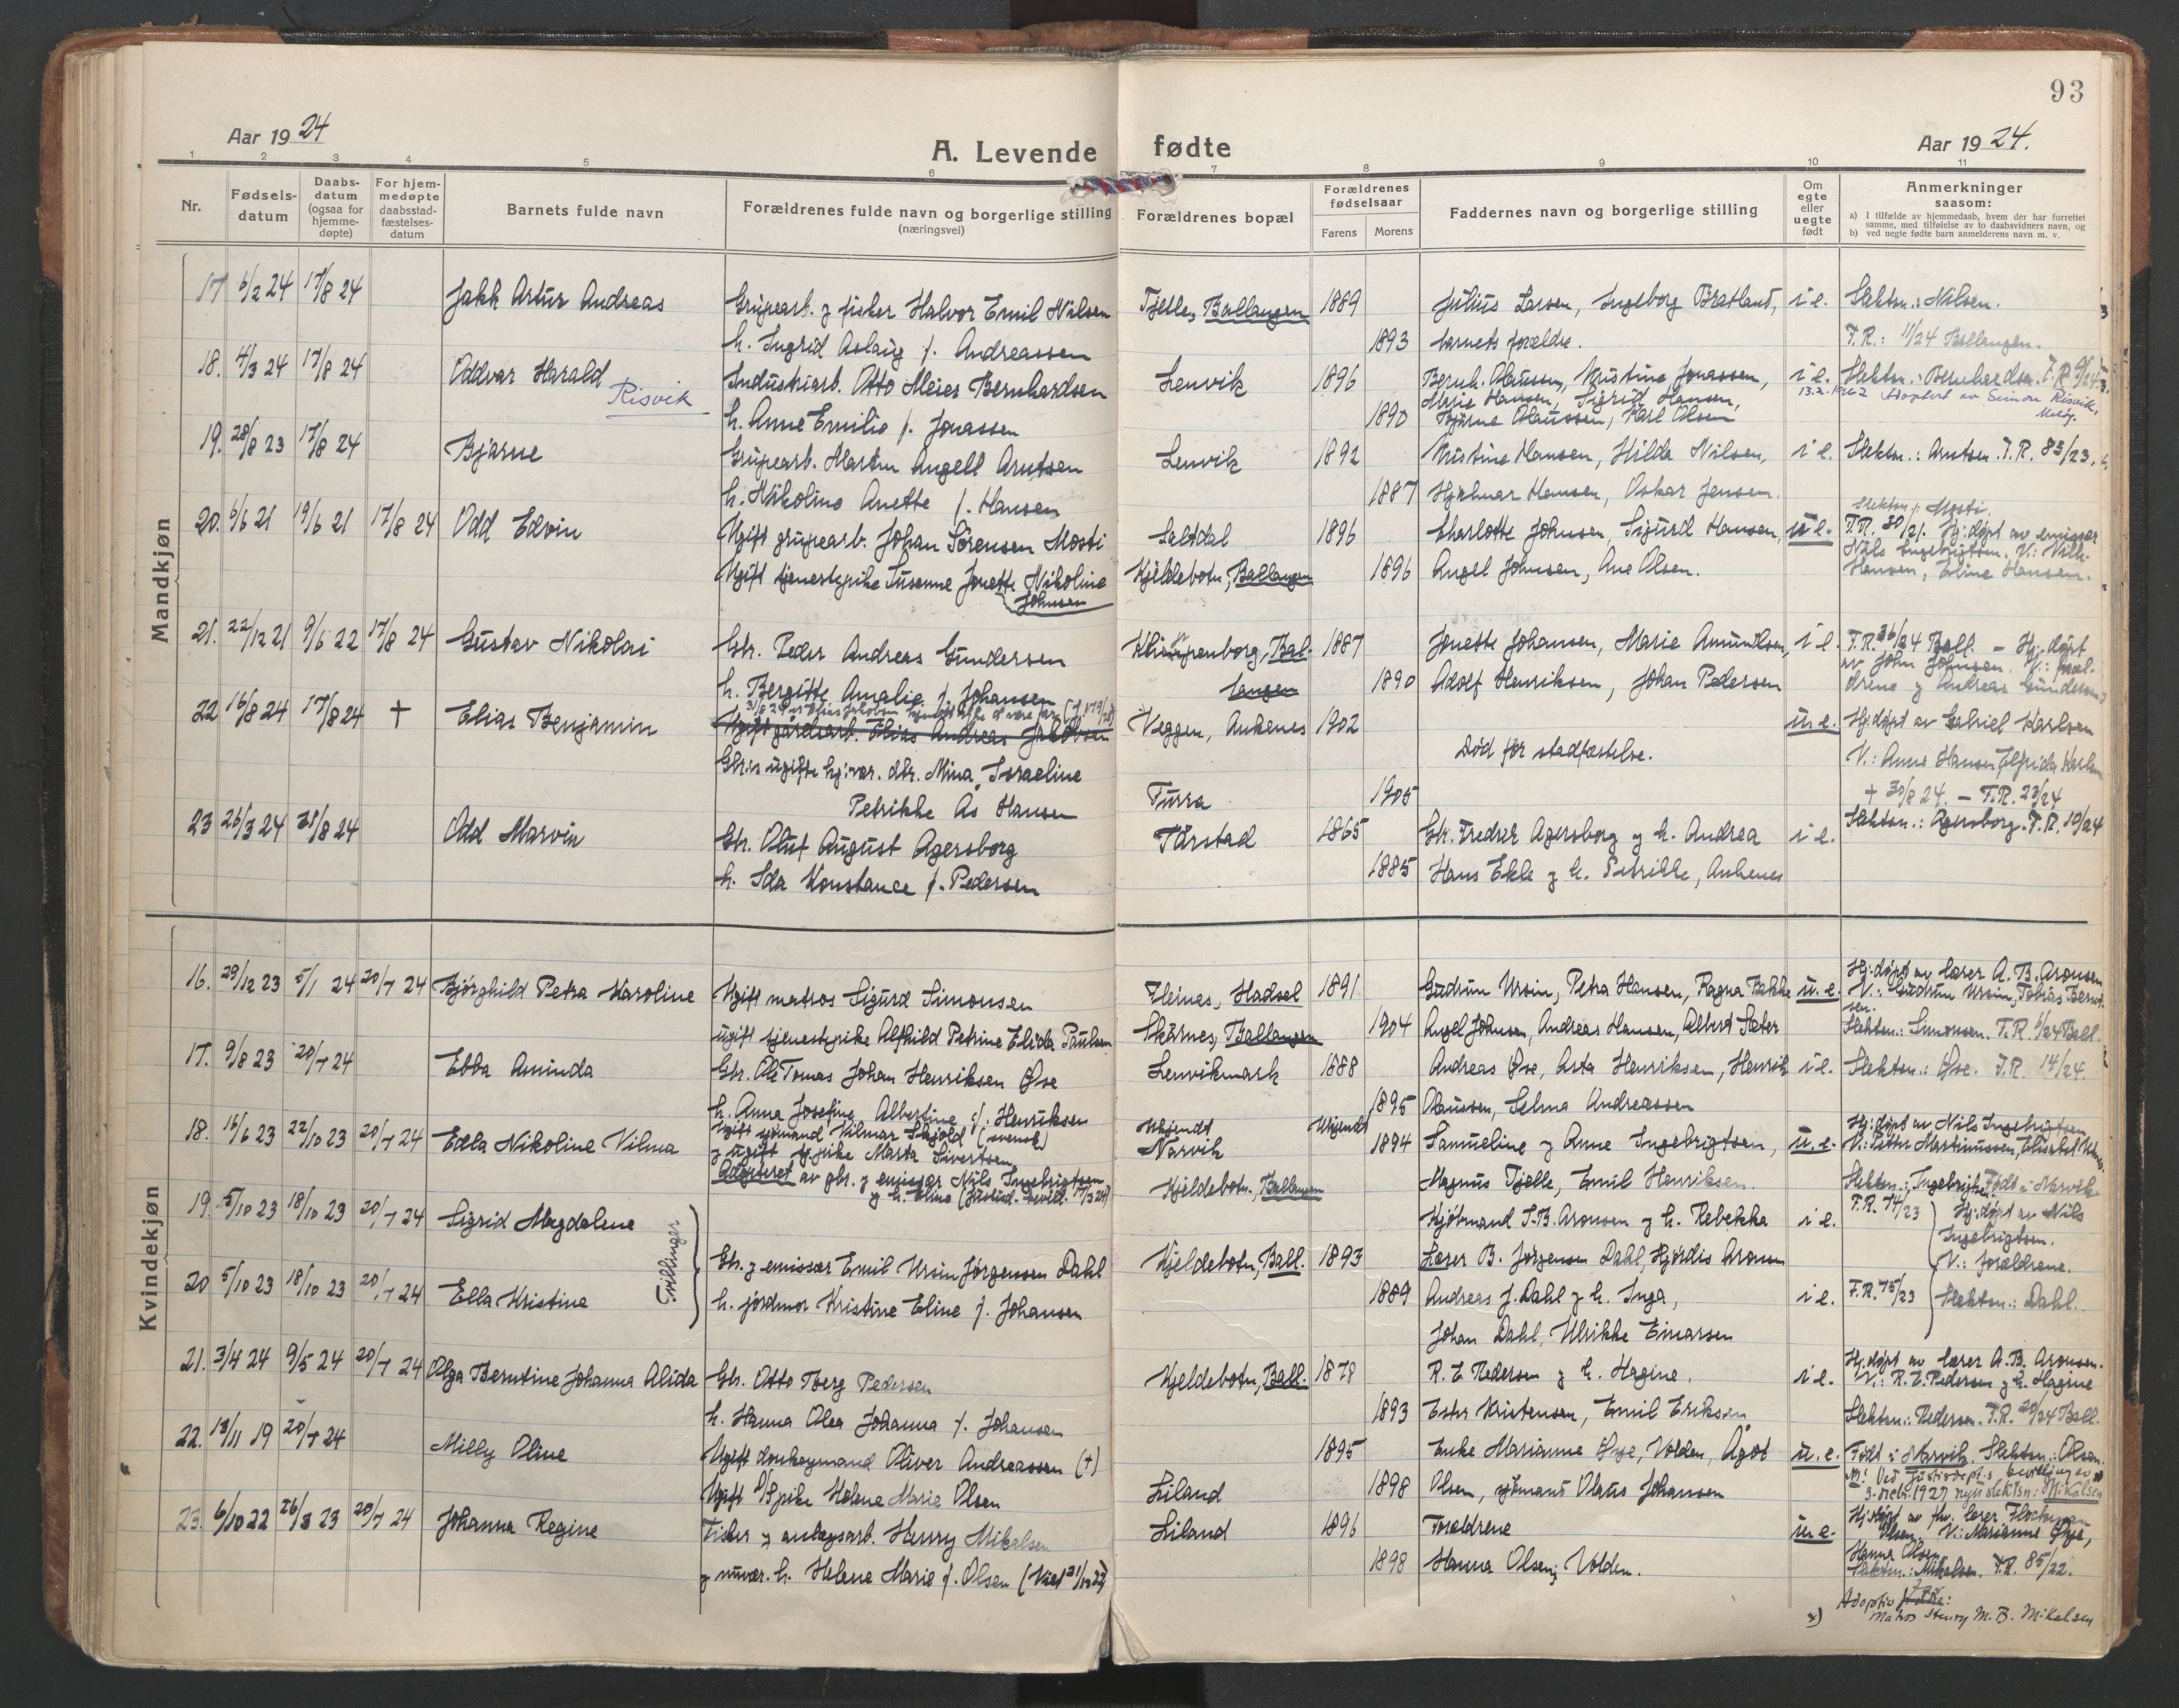 93
Aar 1924
A. Levende fødte
Aar 1924.
1 2 3 4 5 6 7 8 9 10 11
Nr.
Fødsels-datum
Daabs-datum (ogsaa for hjemme-døpte)
For hjem-medøpte daabsstad-fæstelses-datum
Barnets fulde navn
Forældrenes fulde navn og borgerlige stilling (næringsvei)
Forældrenes bopæl
Forældrenes fødselsaar
Farens Morens
Faddernes navn og borgerlige stilling
Om egte eller uegte født
Anmerkninger saasom:
a) I tilfælde av hjemmedaab, hvem der har forrettet samme, med tilføielse av to daabsvidners navn, og
b) ved uegte fødte barn anmelderens navn m. v.
Mandkjøn
17 6/2 24 17/8 24 Jakk Artur Andreas Grupearb. g fisker Halvor Emil Nilsen Tjelle, Ballangen 1889 Julius Larsen, Ingeborg Bratland, i e. Slektsn.: Nilsen.
h. Ingrid Aslaug f. Andreassen 1893 barnets forældre. F.R.: 11/24 Ballangen.
18. 4/3 24 17/8 24 Oddvar Harald Risvik Industriarb. Otto Meier Bernhardsen Lenvik 1896 Bernh. Olaussen, Kristine Jonassen, i e. Slektsn.: Bernhardsen. F.R. 9/24
Marie Hansen, Sigrid Hansen, 13.2.1962 Adoptert av Simon Risvik,
h. Anne Emilie f. Jonassen 1890 Bjarne Olaussen, Karl Olsen
19. 28/8 23 17/8 24 Bjarne Grupearb. Martin Angell Arntsen Lenvik 1892 Kristine Hansen, Hilda Nilsen, i e. Slektsn.: Arntsen. F.R. 83/23.
h. Nikoline Anette f. Hansen 1887 Hjalmar Hansen, Oskar Jensen.
20. 6/6 21 19/6 21 17/8 24 Odd Edvin Ugift grupearb. Johan Sørensen Mosti Saltdal 1896 Charlotte Johnsen, Sigurd Hansen, u e. Slektsn.: Mosti.
F.R. 30/21. Hj:døpt av emissær
Ugift tjenestepike Susanne Jonette Nikoline Johnsen Kjeldebotn, Ballangen 1896 Angel Johnsen, Ane Olsen. Nils Ingebrigtsen. V: Vilh. Hansen, Eline Hansen.
21. 22/12 21 9/6 22 17/8 24 Gustav Nikolai Gbr. Peder Andreas Gundersen Klimpenborg, Bal-langen 1887 Jonette Johansen, Marie Amundsen, i e. F.R. 36/24 Ball. - Hj:døpt
av John Johnsen. V.: foræl-
h. Bergitte Amalie f. Johansen 1890 Adolf Henriksen, Johan Pedersen drene g Andreas Gundersen
22 16/8 24 17/8 24 † Elias Benjamin Ugift gårdsarb. Elias Andreas Jakobsen Veggen, Ankenes 1902 Død før stadfæstelse. u.e. Hj:døpt av Gabriel Karlsen
Gbr.s ugifte hj:vær. dtr. Mina Israeline V.: Anne Hansen, Alfrida Karlsen
Petrikke Ås Hansen Turra 1905 † 30/8 24. - F.R. 23/24
23 26/3 24 31/8 24 Odd Marvin Gbr. Oluf August Agersborg Tårstad 1865 Gbr. Fredrik Agersborg g h. Andrea i e. Slektsn.: Agersborg. F.R. 10/24
h. Ida Konstance f. Pedersen 1885 Hans Ekle g h. Petrikke, Ankenes
Kvindekjøn
16. 29/12 23 5/1 24 20/7 24 Bjørghild Petra Karoline Ugift matros Sigurd Simonsen Fleines, Hadsel 1891 Gudrun Ursin, Petra Hansen, Ragna Bakke u.e. Hj:døpt av lærer A. B. Aronsen
V.: Gudrun Ursin, Tobias Bernt-sen.
ugift tjenestepike Alfhild Petrine Elida Paulsen Skarnes, Ballangen 1904 Angel Johnsen, Andreas Hansen, Albert Sæter Slektsn.: Simonsen. F.R. 6/24 Ball.
17. 9/8 23 20/7 24 Ebba Aminda Gbr. Ole Tomas Johan Henriksen Øse Lenvikmark 1888 Andreas Øse, Asta Henriksen, Henrik i e. Slektsn.: Øse. F.R. 14/24.
h. Anna Josefine Albertine f. Henriksen 1895 Olaussen, Selma Andreassen
18. 16/6 23 22/10 23 20/7 24 Edla Nikoline Vilma Ugift sjømand Vilmar Skjold (svensk) Ukjendt Ukjendt Hj:døpt av Nils Ingebrigtsen
g ugift tj:pike Marta Sivertsen Narvik 1894 Samueline g Anne Ingebrigtsen, u.e. V.: Petter Martinussen,
Adopteret av gbr. g emissær Nils Ingebrigtsen g h. Eline (Justisd. bevill. 17/3 24) Kjeldebotn, Ballangen Magnus Tjelle, Emil Henriksen. Slektsn.: Ingebrigtsen. Født i Narvik
19. 5/10 23 18/10 23 20/7 24 Sigrid Magdalene Tvillinger Kjøbmand S.B. Aronsen g h. Rebekka i e. F.R. 74/23 Hj:døpt av Nils Ingebrigtsen.
Gbr. g emissær Emil Ursin Jørgensen Dahl Kjeldebotn, Ball. 1893 Lærer B. Jørgensen Dahl, Hjørdis Aronsen V.: forældrene.
20 5/10 23 18/10 23 20/7 24 Ella Kristine h. jordmor Kristine Eline f. Johansen 1889 Andreas J. Dahl g h. Inga, i e. F.R. 75/23 Slektsn.: Dahl.
Johan Dahl, Ulrikke Einarsen
21. 3/4 24 9/5 24 20/7 24 Olga Berntine Johanna Alida Gbr. Otto Berg Pedersen Kjeldebotn, Ball. 1878 R. E. Pedersen g h. Hagine. i e. Hj:døpt av lærer A. B. Aronsen.
V.: R. E. Pedersen g h. Hagine
h. Hanna Olea Johanna f. Johansen 1893 Ester Kristensen, Emil Eriksen Slektsn.: Pedersen. F.R. 20/24 Ball.
22. 13/11 19 20/7 24 Milly Oline Ugift donkeymand Oliver Andreassen (†) 1895 Enke Marianne Øye, Volden, Ågot u.e. Født i Narvik. Slektsn.: Olsen.
Ugift tj:pike Helene Marie Olsen Liland 1898 Olsen, sjømand Olaus Johansen Ved Justisdept.s bevilling av
3. decbr. 1927 nyu slektsn.: Mikalsen
23. 6/10 22 26/3 23 20/7 24 Johanna Regine Fisker g anlegsarb. Henry Mikalsen Liland 1896 Forældrene u.e. Hj:døpt av fhv. lærer
Olsen. V.: Marianne Øye,
Hanna Olsen.
g nuvær. h. Helene Marie f. Olsen (Viet 31/12 22) 1898 Hanna Olsen, Volden. Slektsn.: Mikalsen. F.R. 85/22.
x) Adoptiv far:
Matros Henry M. B. Mikalsen